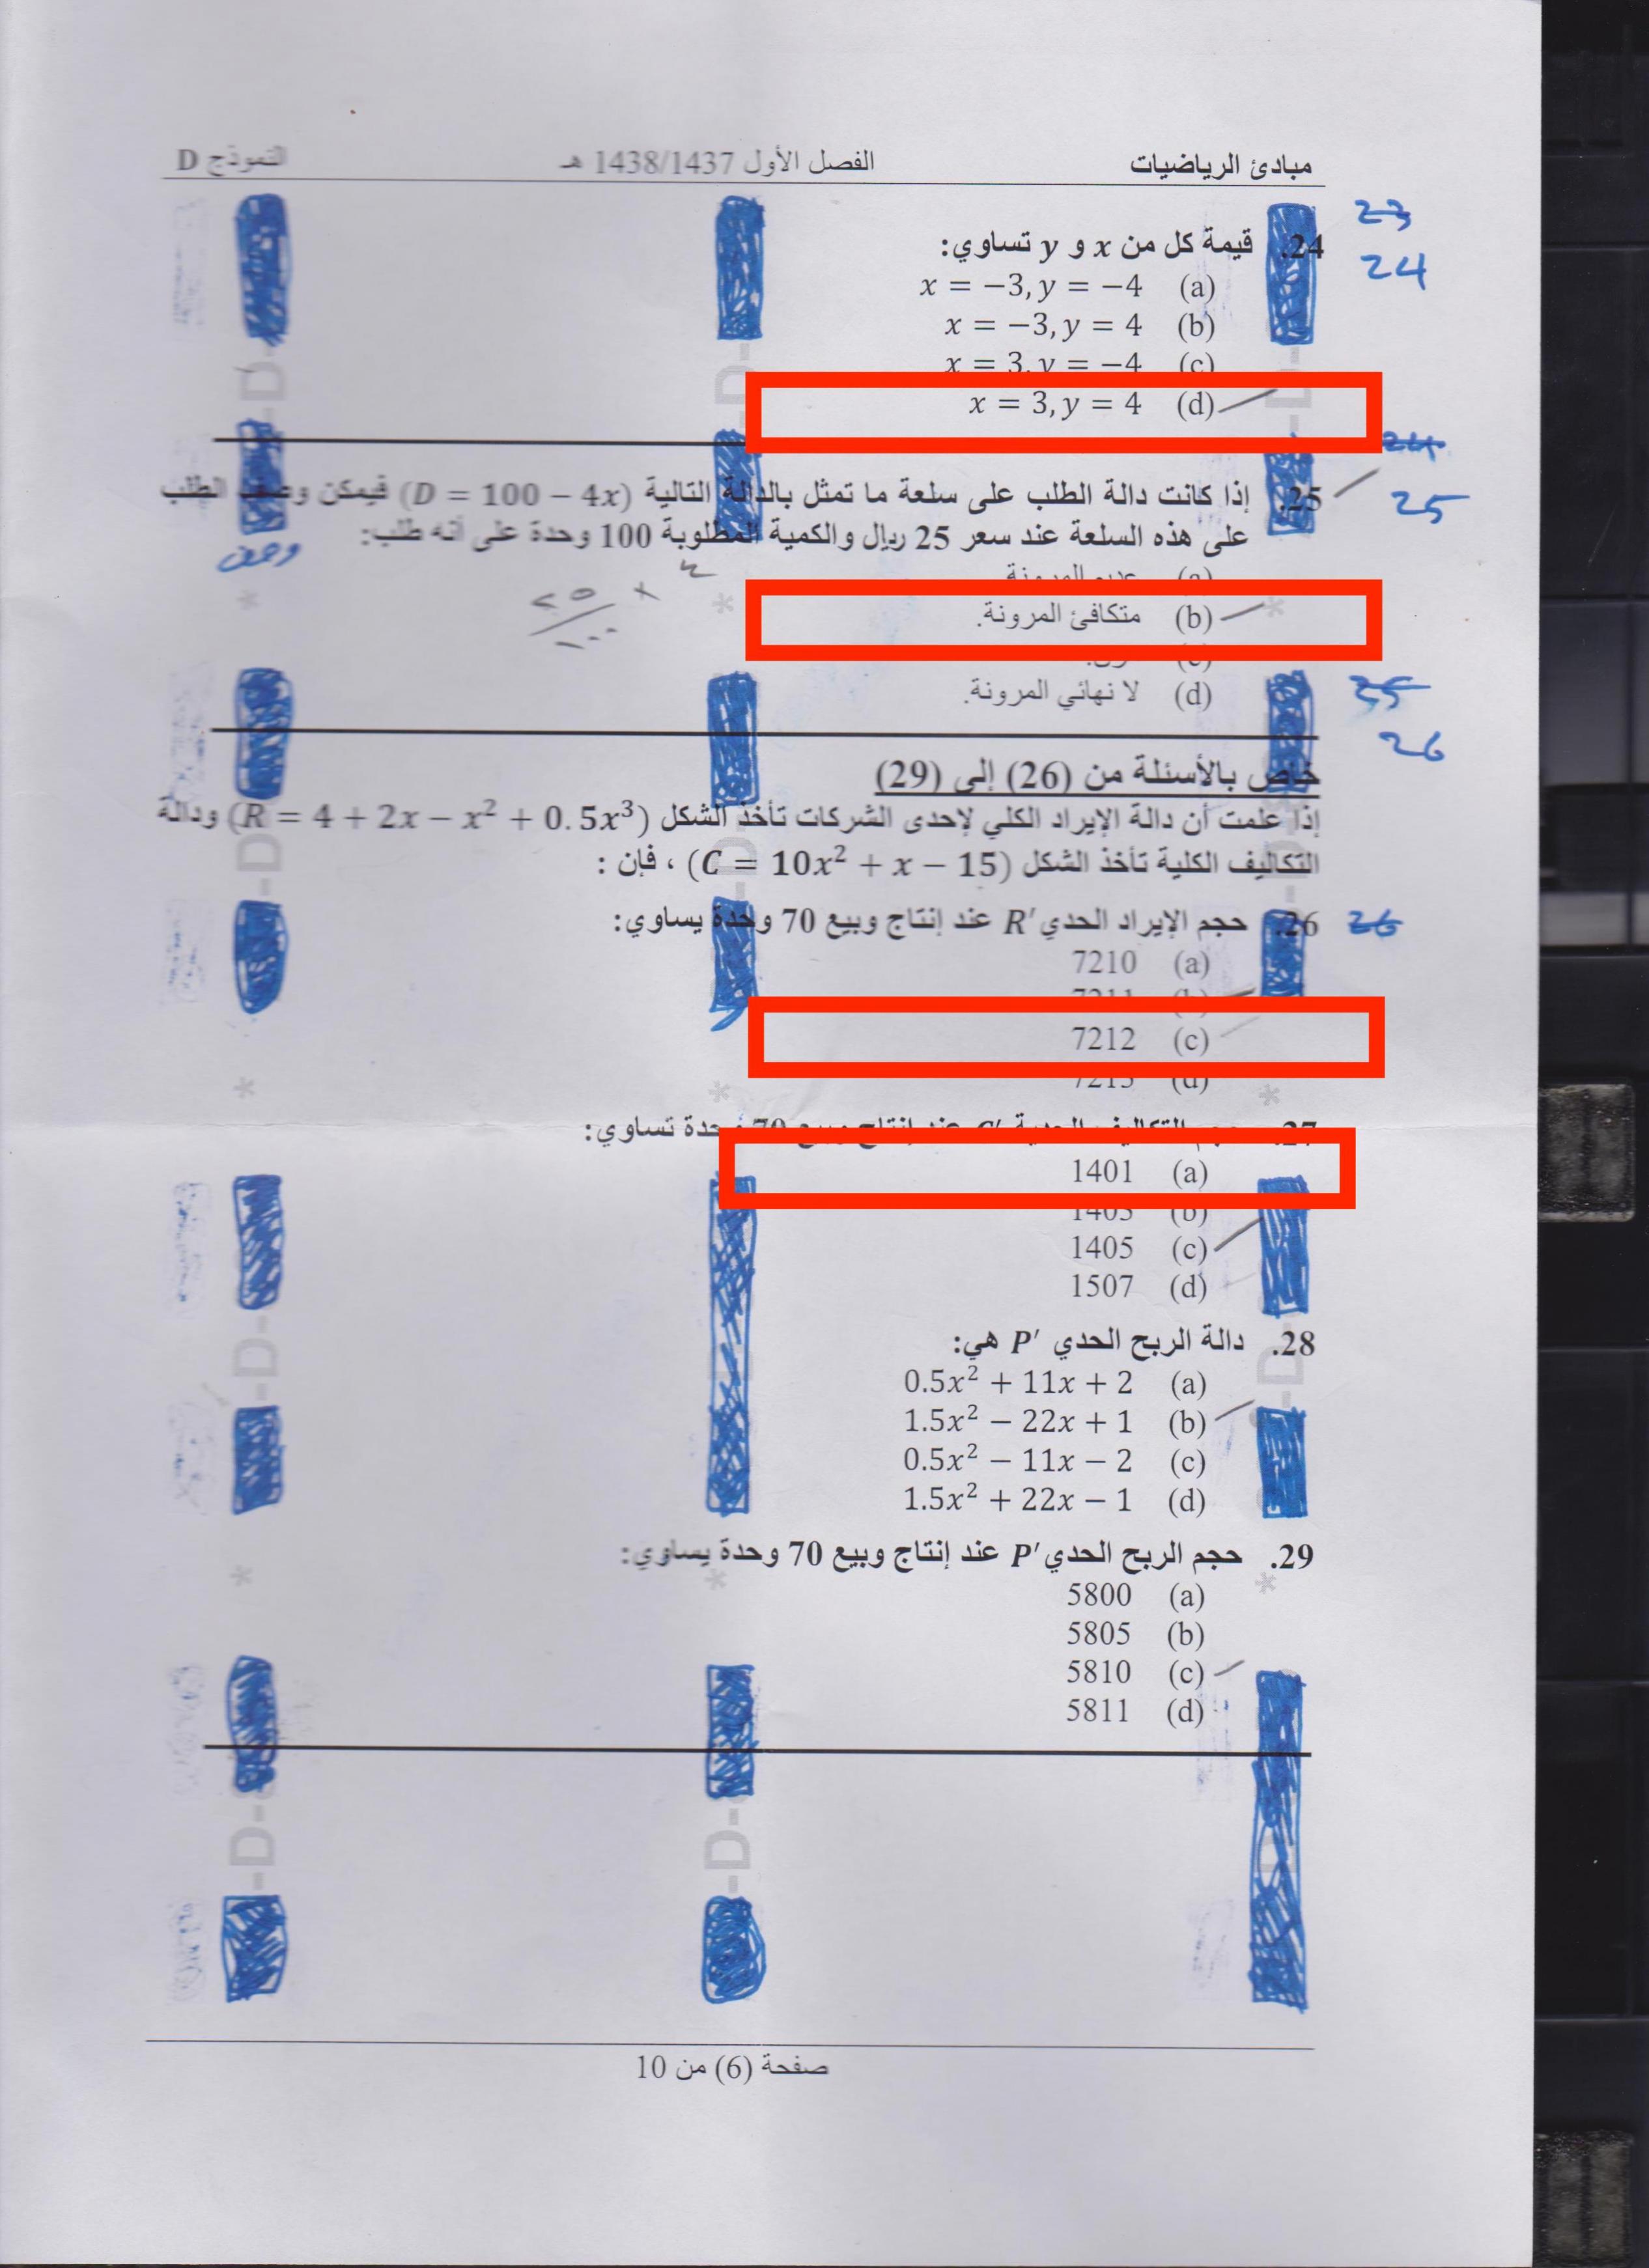 مبادئ الرياضيات الفصل الأول 1438/1437 هـ النموذج D
23
24. قيمة كل من x و y تساوي:
24
(a) x = −3, y = −4
(b) x = −3, y = 4
(c) x = 3, y = −4
(d) x = 3, y = 4
24
25. إذا كانت دالة الطلب على سلعة ما تمثل بالدالة التالية (D = 100 − 4x) فيمكن وصف الطلب
25
على هذه السلعة عند سعر 25 ريال والكمية المطلوبة 100 وحدة على أنه طلب:
وصف
(a) عديم المرونة
(b) متكافئ المرونة.
(d) لا نهائي المرونة.
25
26
خاص بالأسئلة من (26) إلى (29)
إذا علمت أن دالة الإيراد الكلي لإحدى الشركات تأخذ الشكل (R = 4 + 2x − x² + 0.5x³) ودالة
التكاليف الكلية تأخذ الشكل (C = 10x² + x − 15) ، فإن :
26. حجم الإيراد الحدي R′ عند إنتاج وبيع 70 وحدة يساوي:
26
(a) 7210
(b) 7211
(c) 7212
(d) 7213
27. حجم التكاليف الحدية C′ عند إنتاج وبيع 70 وحدة تساوي:
(a) 1401
(b) 1403
(c) 1405
(d) 1507
28. دالة الربح الحدي P′ هي:
(a) 0.5x² + 11x + 2
(b) 1.5x² − 22x + 1
(c) 0.5x² − 11x − 2
(d) 1.5x² + 22x − 1
29. حجم الربح الحدي P′ عند إنتاج وبيع 70 وحدة يساوي:
(a) 5800
(b) 5805
(c) 5810
(d) 5811
صفحة (6) من 10